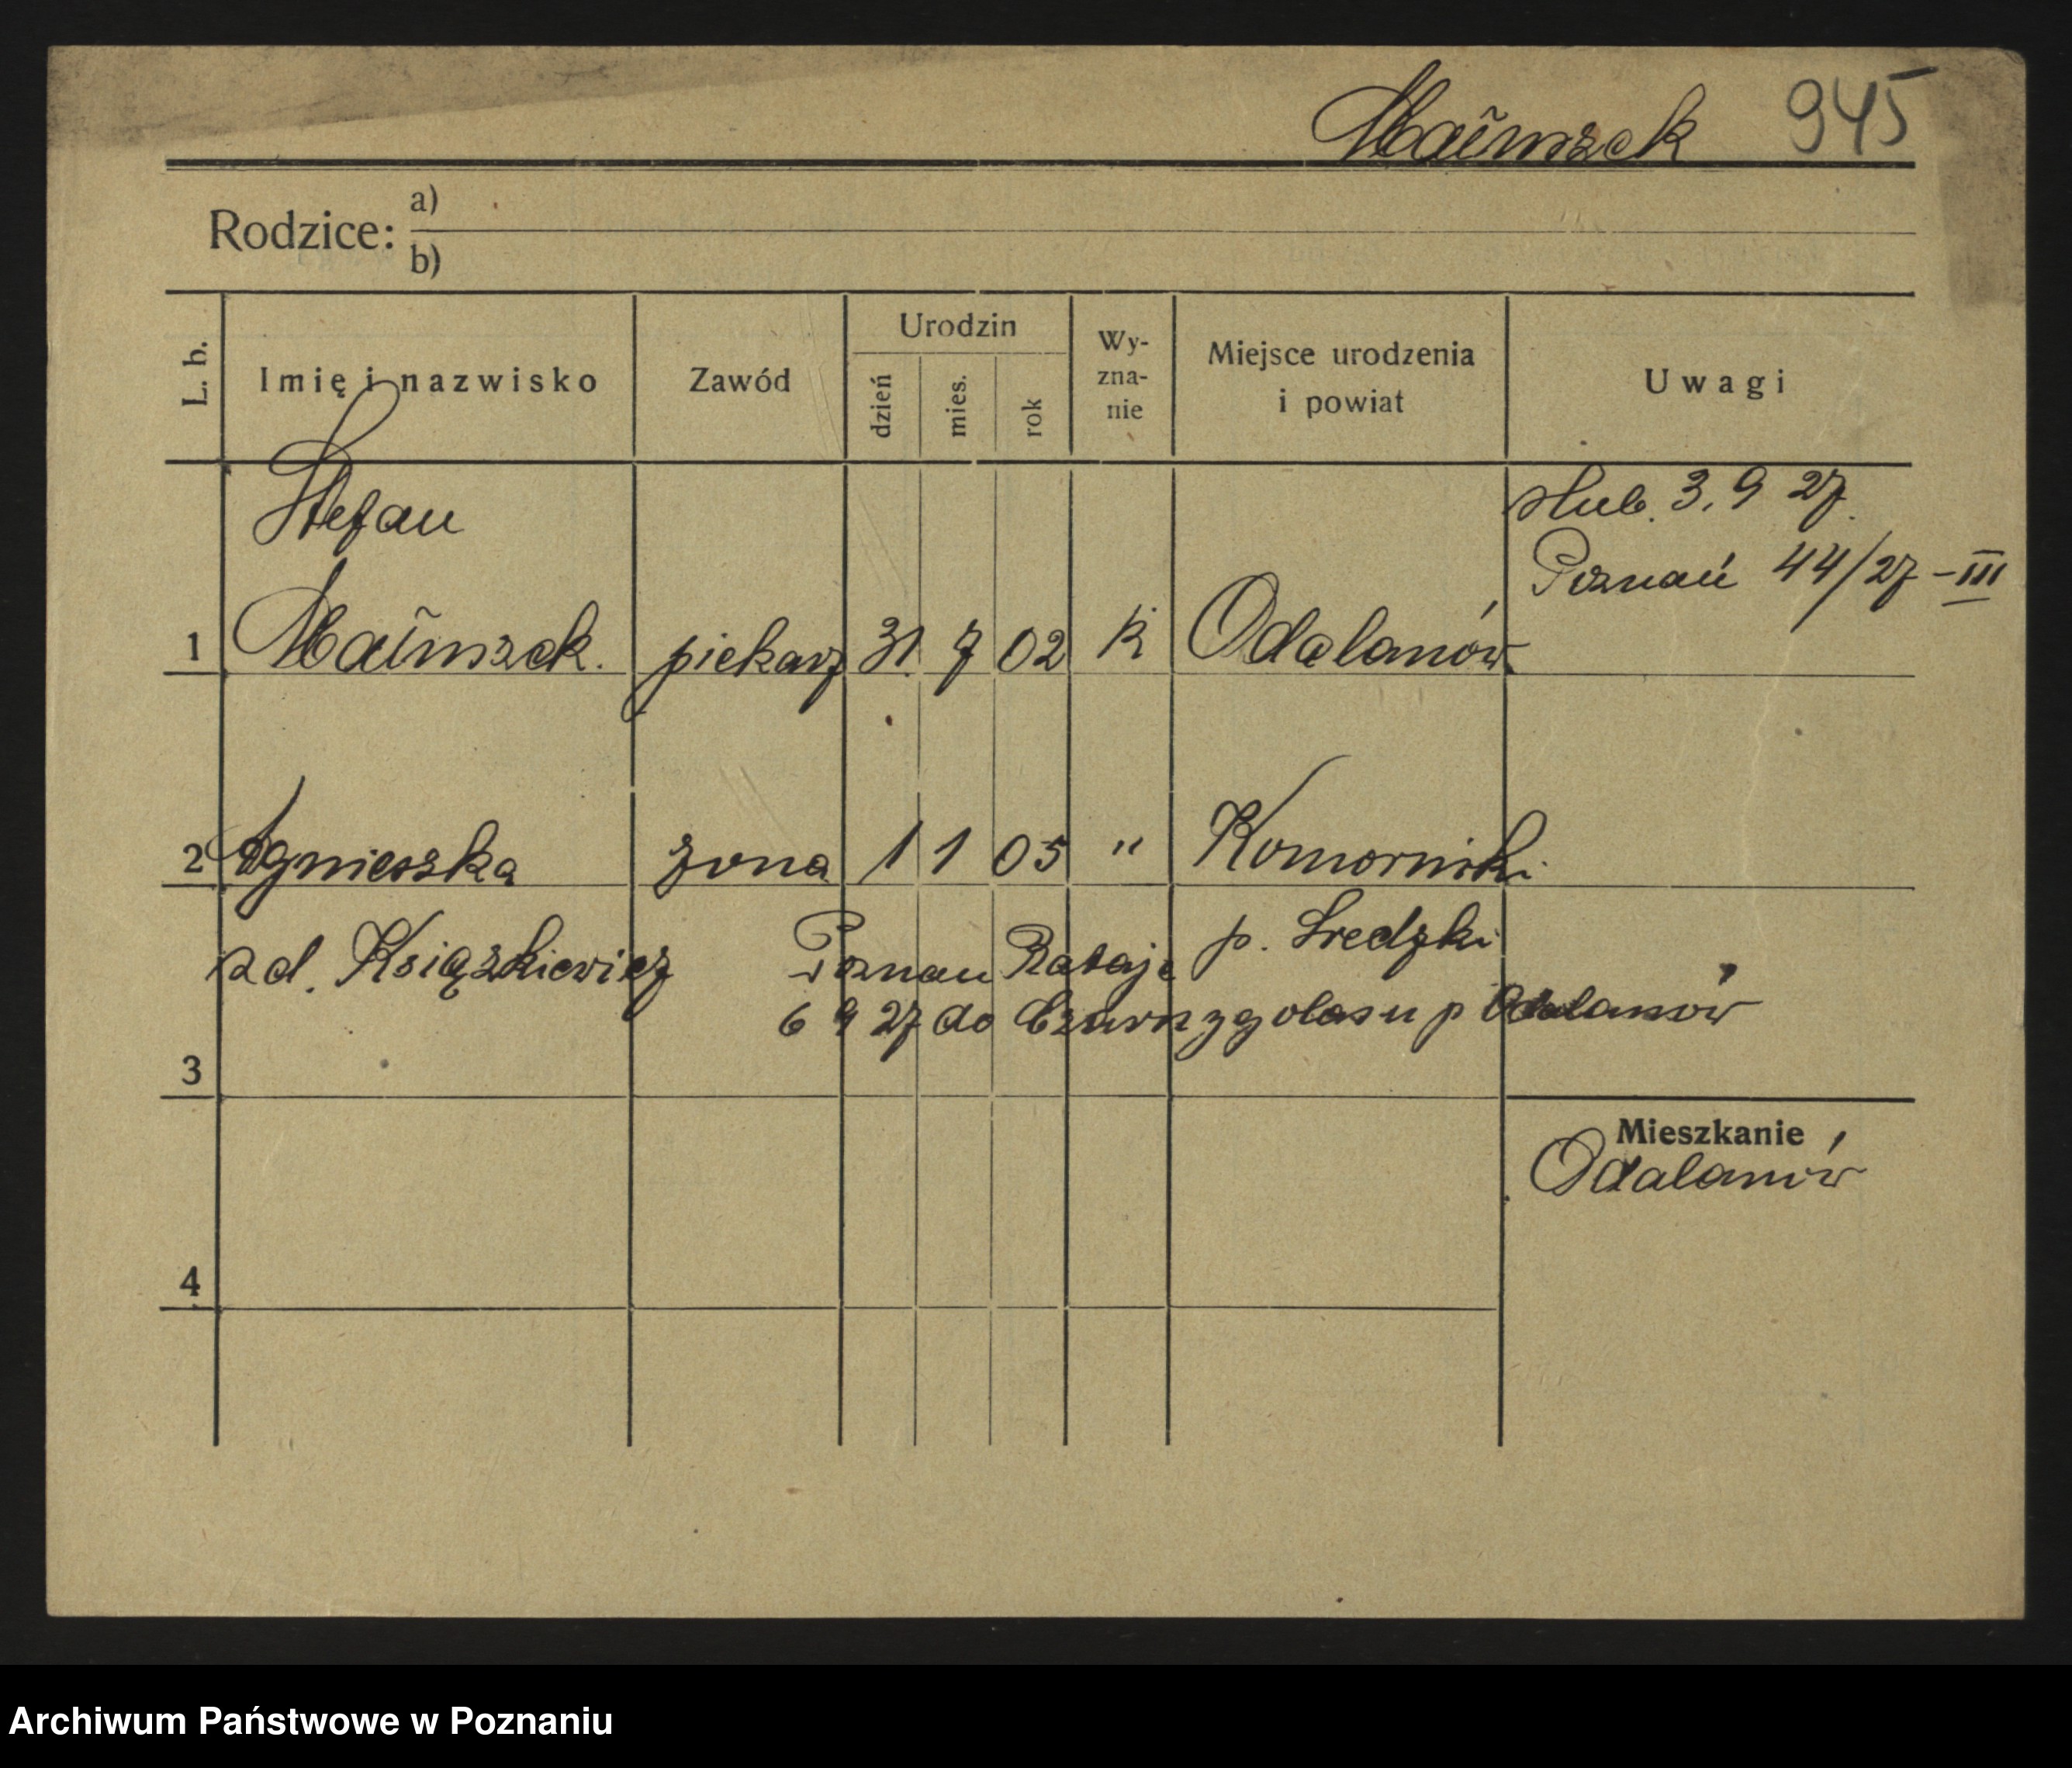 945
Rodzice: a)
b)
L. b.
Imię i nazwisko
Zawód
Urodzin
dzień
mies.
rok
Wy-
zna-
nie
Miejsce urodzenia
i powiat
Uwagi
Stefan
ślub. 3. 9 27.
Poznań 44/27 - III
1 piekarz 31. 7 02 k Odalanów
2 Agnieszka żona 1 1 05 " Komorniki
zd. Książkiewicz Poznań Rataje p. Sredzki
6 9 27 do Czarnzgolasu p Odalanów
3
Mieszkanie
Odalanów
4
Archiwum Państwowe w Poznaniu